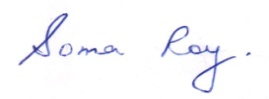 Soma Roy.